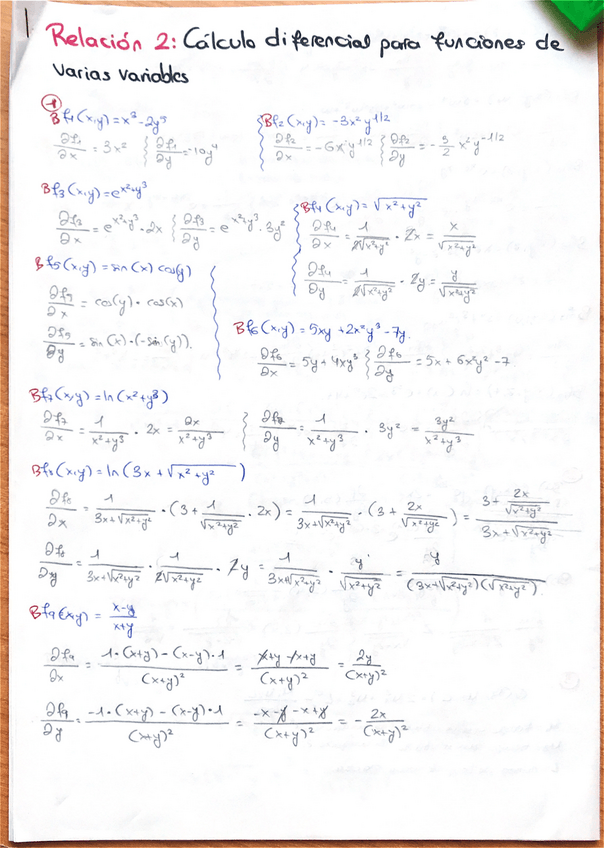 Relación 2: Cálculo diferencial para funciones de
varias variables
1
B f1(x,y) = x³ - 2y⁵
∂f1/∂x = 3x² { ∂f1/∂y = -10y⁴
B f2(x,y) = -3x²y^1/2
∂f2/∂x = -6x y^1/2 { ∂f2/∂y = -3/2 x²y^-1/2
B f3(x,y) = e^x²+y³
∂f3/∂x = e^x²+y³ · 2x { ∂f3/∂y = e^x²+y³ · 3y²
B f4(x,y) = √x²+y²
∂f4/∂x = 1/2√x²+y² · 2x = x/√x²+y²
∂f4/∂y = 1/2√x²+y² · 2y = y/√x²+y²
B f5(x,y) = sin(x) cos(y)
∂f5/∂x = cos(y) · cos(x)
∂f5/∂y = sin(x) · (-sin(y)).
B f6(x,y) = 5xy + 2x²y³ - 7y.
∂f6/∂x = 5y + 4xy³ { ∂f6/∂y = 5x + 6x²y² - 7
B f7(x,y) = ln(x²+y³)
∂f7/∂x = 1/x²+y³ · 2x = 2x/x²+y³ { ∂f7/∂y = 1/x²+y³ · 3y² = 3y²/x²+y³
B f8(x,y) = ln(3x + √x²+y²)
∂f8/∂x = 1/3x+√x²+y² · (3 + 1/√x²+y² · 2x) = 1/3x+√x²+y² · (3 + 2x/√x²+y²) = 3 + 2x/√x²+y² / 3x+√x²+y²
∂f8/∂y = 1/3x+√x²+y² · 1/2√x²+y² · 2y = 1/3x+√x²+y² · y/√x²+y² = y/(3x+√x²+y²)(√x²+y²).
B f9(x,y) = x-y/x+y
∂f9/∂x = 1·(x+y) - (x-y)·1/(x+y)² = x+y-x+y/(x+y)² = 2y/(x+y)²
∂f9/∂y = -1·(x+y) - (x-y)·1/(x+y)² = -x-y-x+y/(x+y)² = - 2x/(x+y)²